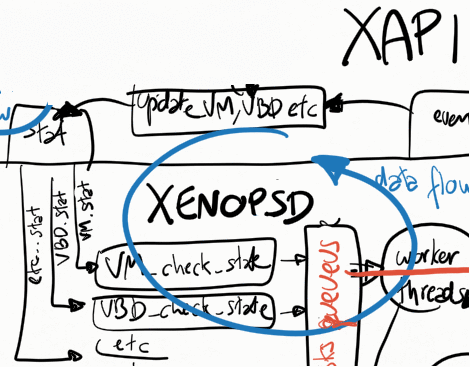 XAPI
update VM, VBD etc
stat
even
data flow
XENOPSD
etc..stat
VBD.stat
VM.stat
VM_check_state
VBD_check_state
etc
queues
worker
threads